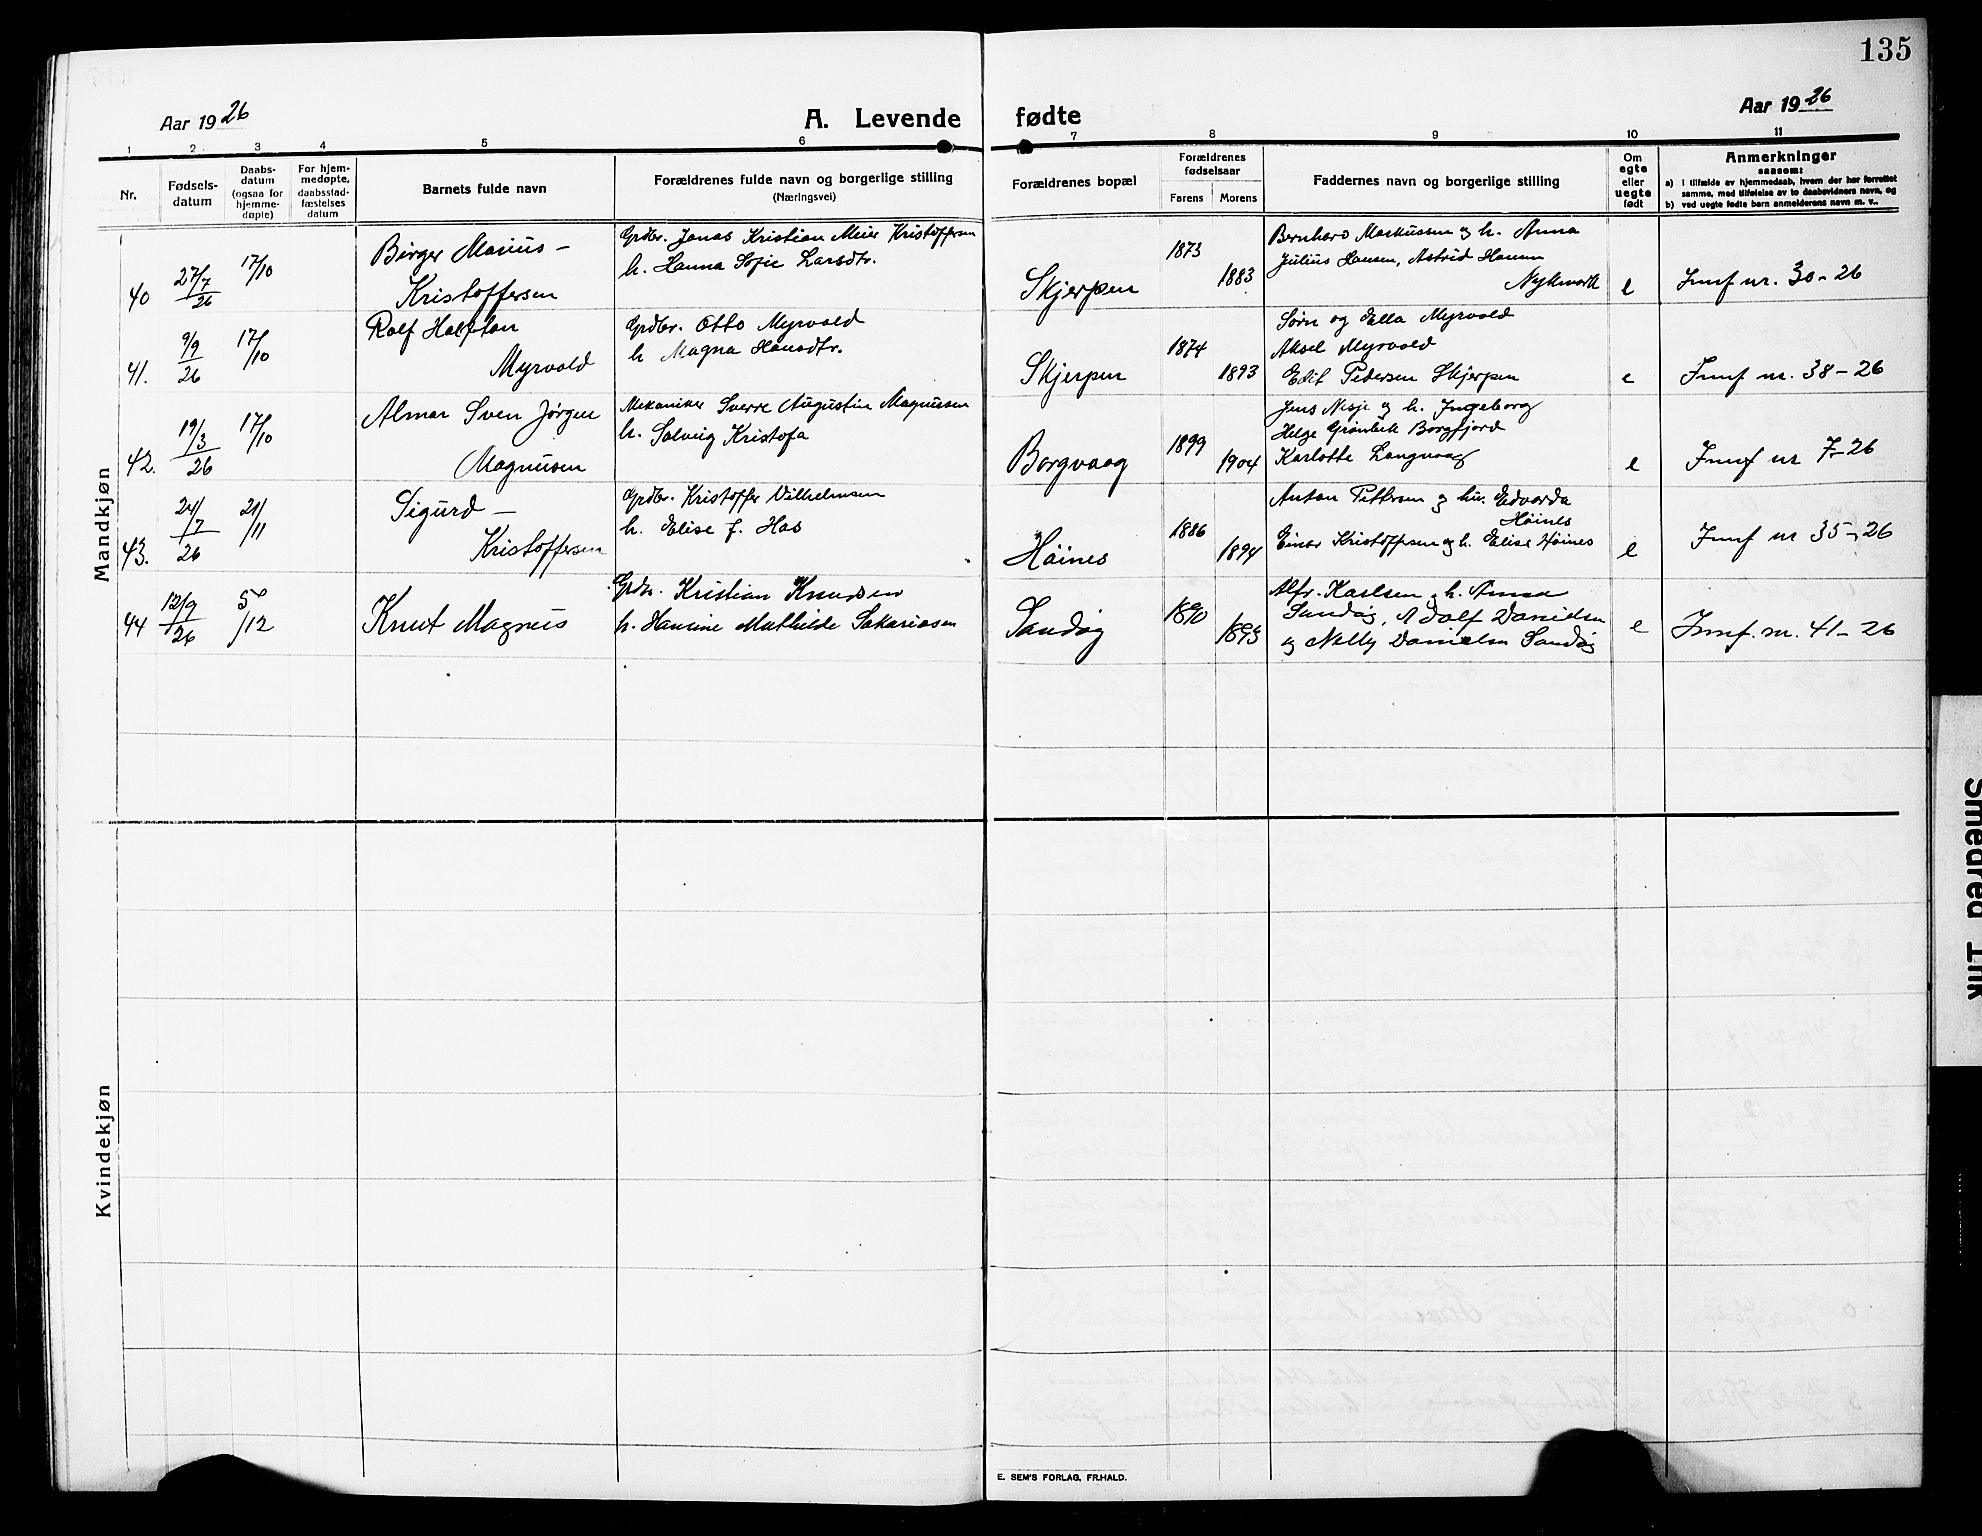 135
Aar 1926
A. Levende fødte
Aar 1926
1 2 3 4 5 6 7 8 9 10 11
Nr.
Fødsels-
datum
Daabs-
datum
(ogsaa for
hjemme-
døpte)
For hjem-
medøpte,
daabsstad-
fæstelses
datum
Barnets fulde navn
Forældrenes fulde navn og borgerlige stilling
(Næringsvei)
Forældrenes bopæl
Forældrenes
fødselsaar
Farens Morens
Faddernes navn og borgerlige stilling
Om
egte
eller
uegte
født
Anmerkninger
saasom:
a) i tilfælde av hjemmedaab, hvem der har forrettet
samme, med tilføielse av to daabsvidners navn, og
b) ved uegte fødte barn anmelderens navn m. v..
Mandkjøn
40 27/7 26 17/10
Birger Marius -
Kristoffersen
Grdbr. Jonas Kristian Meier Kristoffersen
h. Hanna Sofie Larsdtr.
Skjerpen
1873
1883
Bernhard Markussen og h. Anna
Julius Hansen, Astrid Hansen
Nykmark
e
Jmf nr. 30-26
41. 9/9 26 17/10
Rolf Halfdan
Myrvold
Grdbr. Otto Myrvold
h Magna Hansdtr.
Skjerpen
1874
1893
Sørn og Ella Myrvold
Aksel Myrvold
Edit Pedersen Skjerpen
e
Jmf nr. 38-26
42. 19/3 26 17/10
Almar Sven Jørgen
Magnusen
Mekaniker Sverre Augustin Magnussen
h. Solveig Kristofa
Borgvaag
1899
1904
Jens Nesje og h. Ingeborg
Helge Grønbek Borgfjord
Karlotte Langvaag
e
Jmf nr 7-26
43. 24/7 26 21/11
Sigurd -
Kristoffersen
Grdbr. Kristoffer Vilhelmsen
h. Elise f. Has
Høines
1886
1894
Anton Pettersen og hu. Edvarda
Høines
Einar Kristoffersen og h. Elise Høines
e
Jmf nr 35-26
44 12/9 1926 5/12
Knut Magnus
Grdbr. Kristian Knudsen
h. Hansine Mathilde Sakariasen
Sandøg
1890
1893
Alfr. Karlsen, h. Anna
Sandøg, Adolf Danielsen
og Nelly Danielsen Sandøg
e
Jmf. nr. 41-26
Kvindekjøn
E. SEM'S FORLAG, FR.HALD.
Smedred Trik